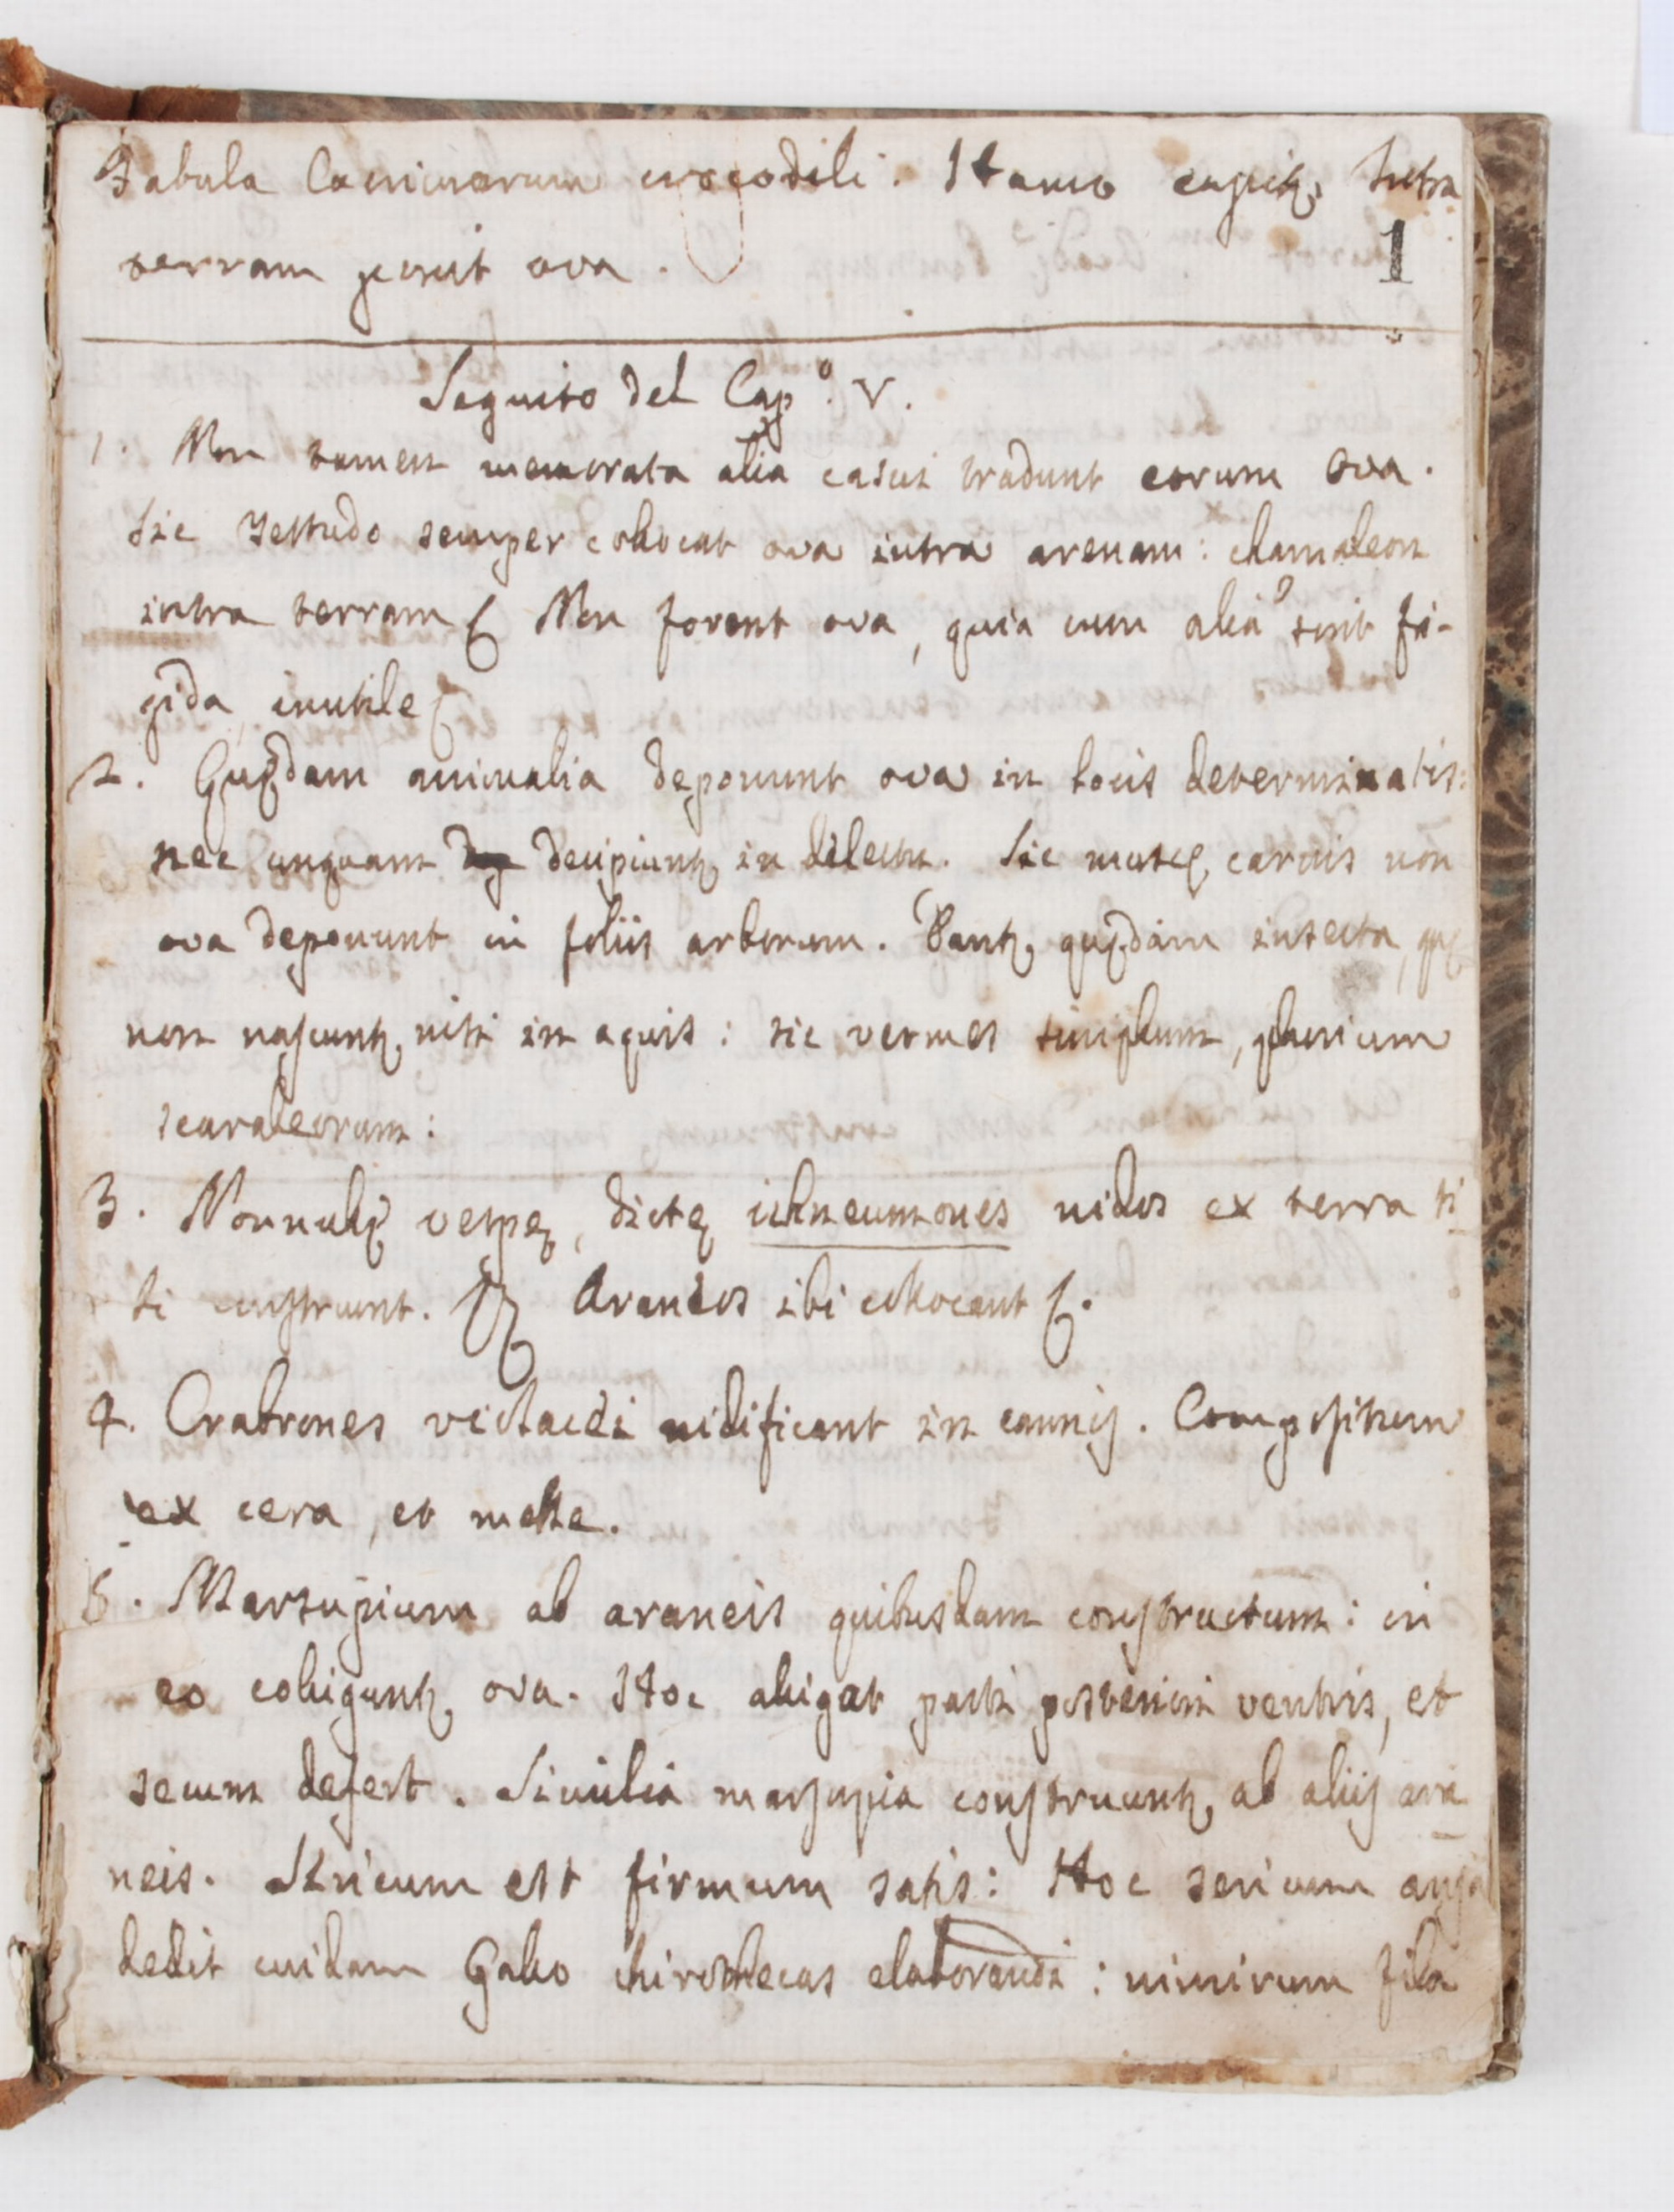 Fabula lacrimarum crocodili. Hamo capitꝭ Intra
1
terram ponit ova.
Seguito del Cap.º V.
1. Non tamen memorata alia casui tradunt eorum ova.
Sic Testudo semper collocat ova intra arenam: chamaleon
intra terram. Non fovent ova, quia cum alia sint fri-
gida, inutile
2. Quędam animalia deponunt ova in locis determinatis:
nec unquam decipiuntꝭ in dilectu. Sic muscę carnis non
ova deponunt in foliis arborum. Dantꝭ quędam insecta, quę
non nascuntꝭ nisi in aquis: sic vermes simplum, plurium
scarabeorum:
3. Nonnullę vespę, dictę ichneumones nidos ex terra si
bi construunt. Araneos ibi collocant.
4. Crabrones nidificant in cannis. Compositum
ex cera, et melle.
5. Marsupium ab araneis quibusdam constructum: in
eo colliguntꝭ ova. Hoc alligat parti posteriori ventris, et
secum defert. Similia marsupia construuntꝭ ab aliis ara
neis. Sericum est firmum satis: Hoc sericum ansa
dedit cuidam Gallo chirothecas elaborandi: nimirum fila